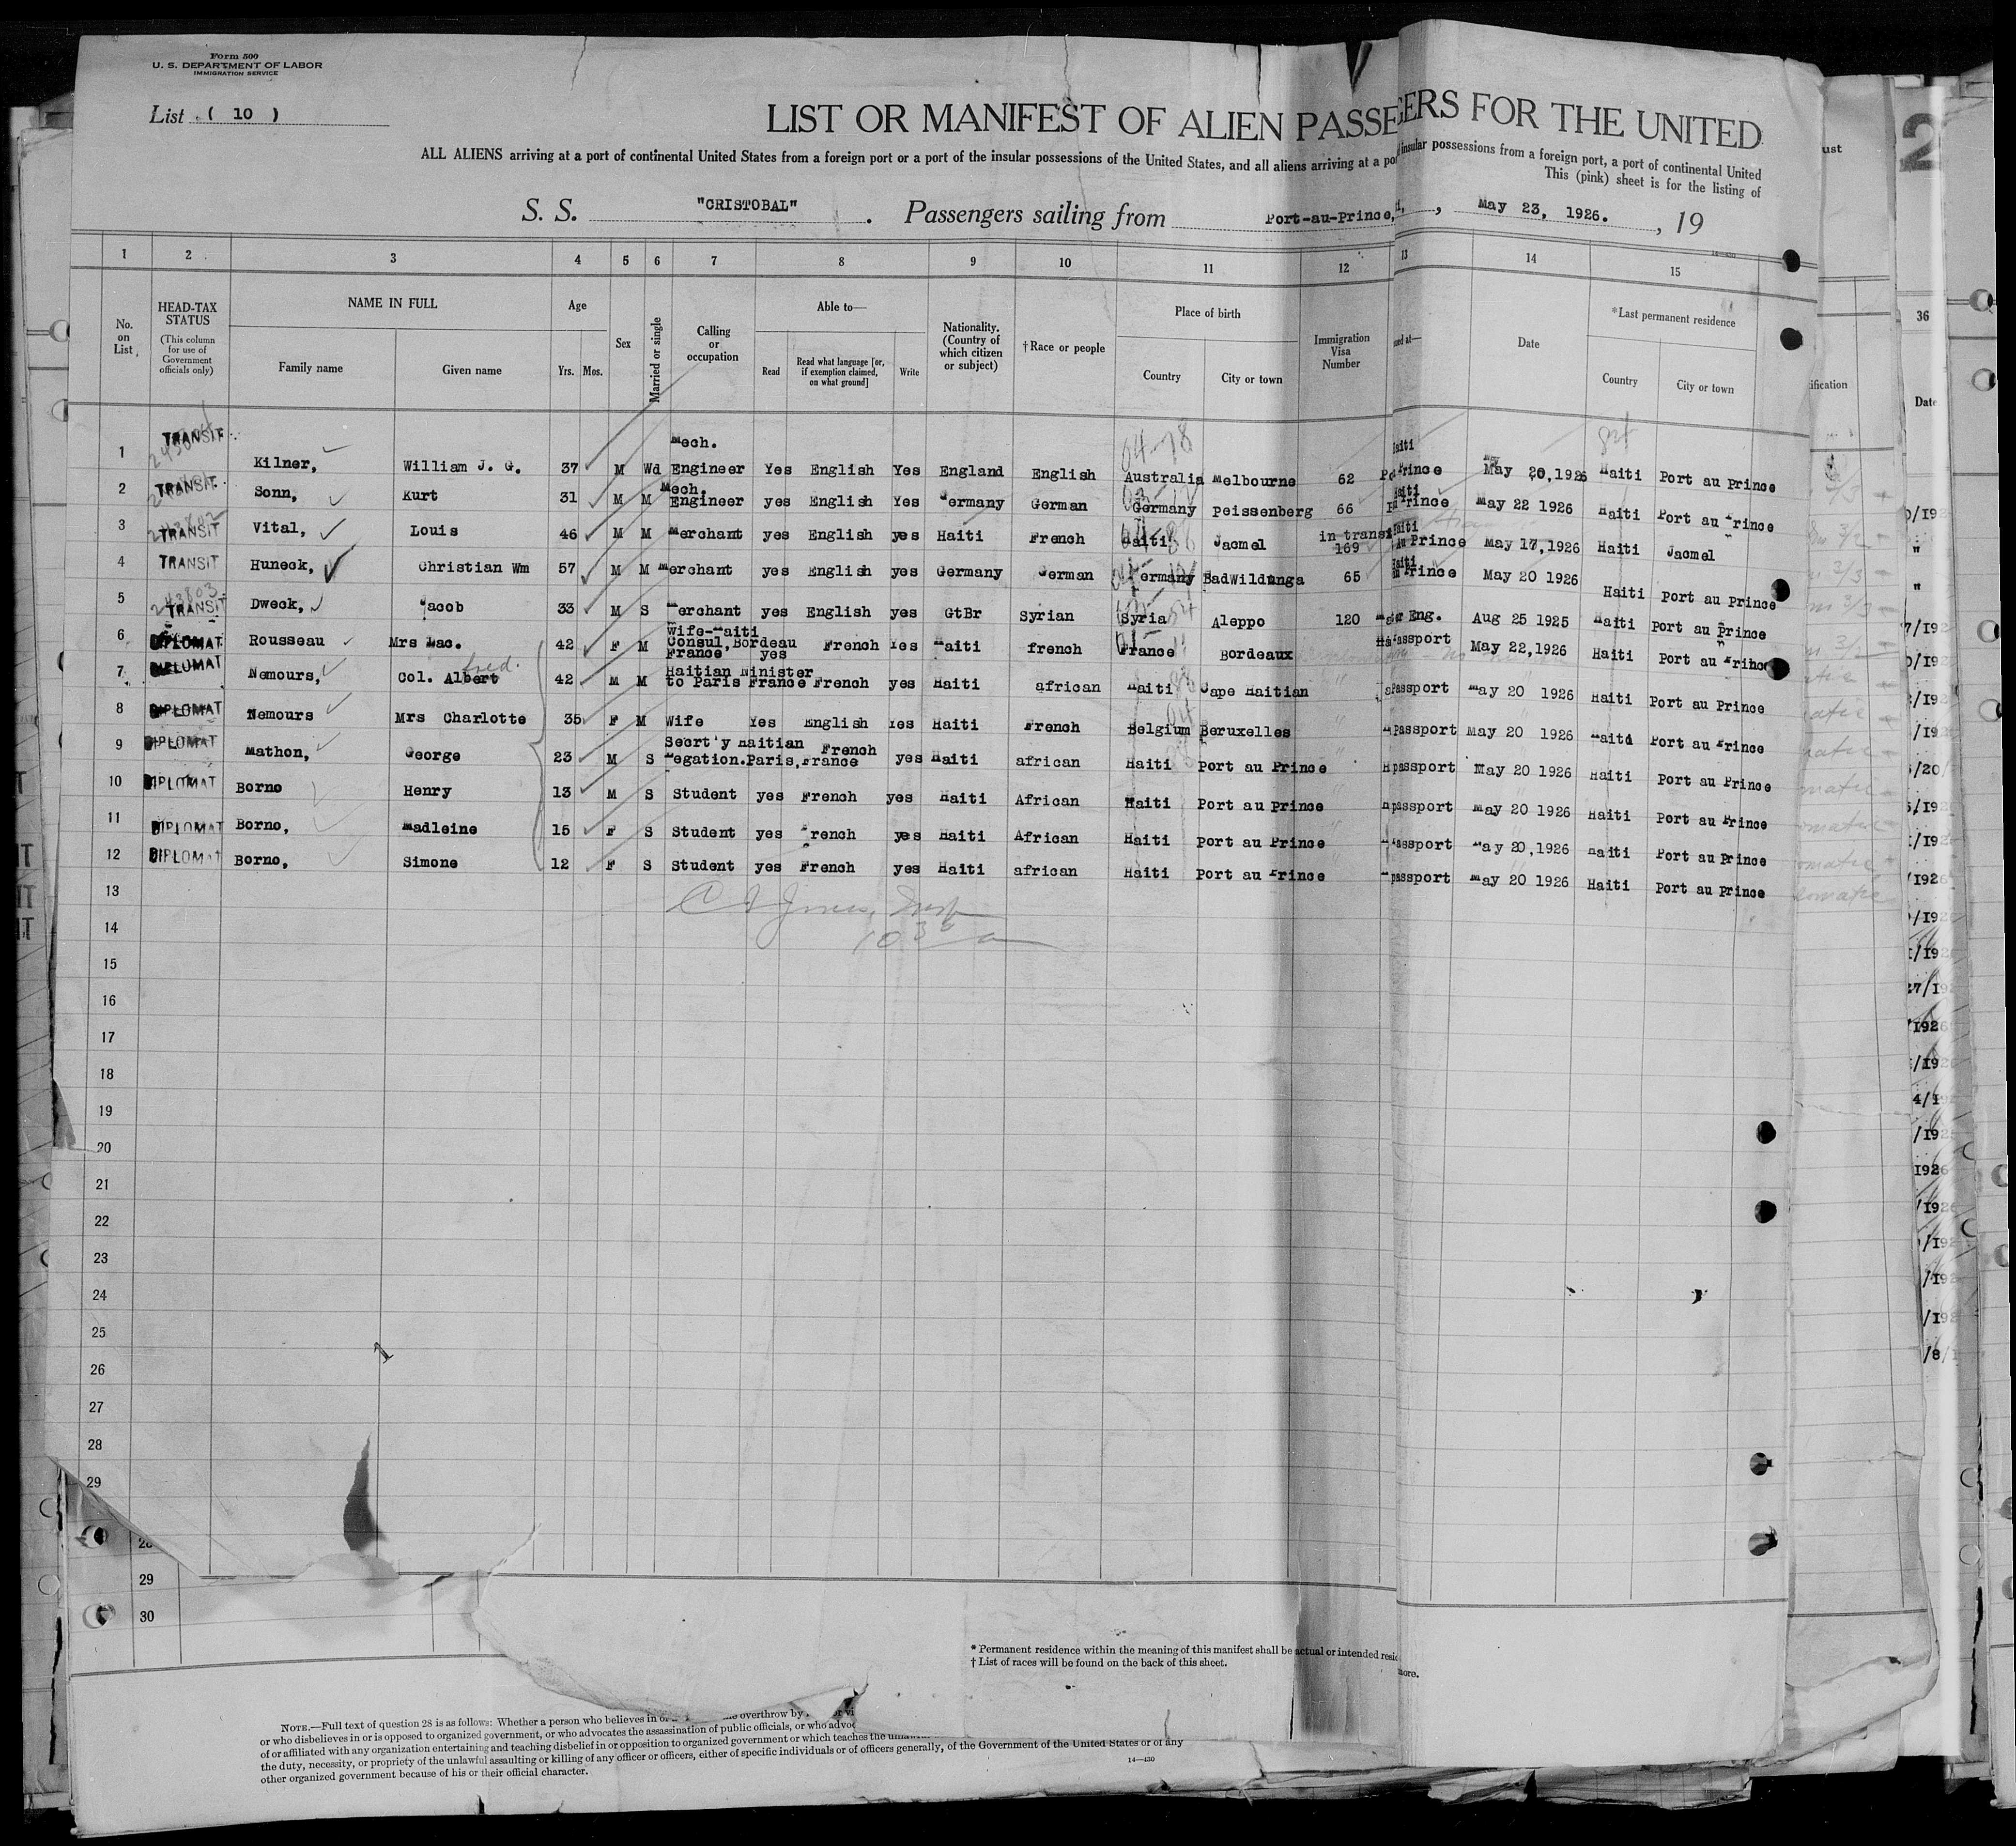 Form 500
U. S. DEPARTMENT OF LABOR
IMMIGRATION SERVICE
List ( 10 )
LIST OR MANIFEST OF ALIEN PASSENGERS FOR THE UNITED
ALL ALIENS arriving at a port of continental United States from a foreign port or a port of the insular possessions of the United States, and all aliens arriving at a port insular possessions from a foreign port, a port of continental United
This (pink) sheet is for the listing of
S. S. "CRISTOBAL" . Passengers sailing from Port-au-Prince, , May 23, 1926. , 19
1 2 3 4 5 6 7 8 9 10 11 12 13 14 15
No. on List HEAD-TAX STATUS (This column for use of Government officials only) NAME IN FULL Family name Given name Age Yrs. Mos. Sex Married or single Calling or occupation Able to— Read Read what language [or, if exemption claimed, on what ground] Write Nationality. (Country of which citizen or subject) †Race or people Place of birth Country City or town Immigration Visa Number Date *Last permanent residence Country City or town
1 TRANSIT Kilner, William J. G. 37 M Wd Mech. Engineer Yes English Yes England English Australia Melbourne 62 Prince Haiti May 20,1926 Haiti Port au Prince
2 TRANSIT Sonn, Kurt 31 M M Mech. Engineer yes English Yes Germany German Germany peissenberg 66 Prince Haiti May 22 1926 Haiti Port au Prince
3 TRANSIT Vital, Louis 46 M M Merchant yes English yes Haiti French Haiti Jacmel in transit 169 Au Prince Haiti May 17,1926 Haiti Jacmel
4 TRANSIT Huneck, Christian Wm 57 M M Merchant yes English yes Germany German Germany BadWildunga 65 Prince Haiti May 20 1926 Haiti port au Prince
5 243803 TRANSIT Dweck, Jacob 33 M S Merchant yes English yes GtBr Syrian Syria Aleppo 120 Eng. Aug 25 1925 Haiti port au Prince
6 DIPLOMAT Rousseau Mrs Lac. 42 F M Wife-Haiti Consul,Bordeau France yes French Yes Haiti french France Bordeaux passport May 22,1926 Haiti Port au Prince
7 DIPLOMAT Nemours, Col. Albert fred. 42 M M Haitian Minister to Paris France French yes Haiti african Haiti Cape Haitian Passport May 20 1926 Haiti Port au Prince
8 DIPLOMAT Nemours Mrs Charlotte 35 F M Wife Yes English Yes Haiti French Belgium Beruxelles passport May 20 1926 Haiti Port au Prince
9 DIPLOMAT Mathon, George 23 M S Secrt'y Haitian Legation.Paris,France French yes Haiti african Haiti Port au Prince passport May 20 1926 Haiti Port au Prince
10 DIPLOMAT Borno Henry 13 M S Student yes French yes Haiti African Haiti Port au Prince passport May 20 1926 Haiti Port au Prince
11 DIPLOMAT Borno, Madleine 15 F S Student yes French yes Haiti African Haiti Port au Prince passport May 20,1926 Haiti Port au Prince
12 DIPLOMAT Borno, Simone 12 F S Student yes French yes Haiti african Haiti Port au Prince passport May 20 1926 Haiti Port au Prince
13
14
10 30 a
15
16
17
18
19
20
21
22
23
24
25
26
27
28
29
29
30
* Permanent residence within the meaning of this manifest shall be actual or intended
† List of races will be found on the back of this sheet.
NOTE.—Full text of question 28 is as follows: Whether a person who believes in overthrow by
or who disbelieves in or is opposed to organized government, or who advocates the assassination of public officials, or who
of or affiliated with any organization entertaining and teaching disbelief in or opposition to organized government or which teaches the
the duty, necessity, or propriety of the unlawful assaulting or killing of any officer or officers, either of specific individuals or of officers generally, of the Government of the United States or of any
other organized government because of his or their official character.
14—430
36
Date